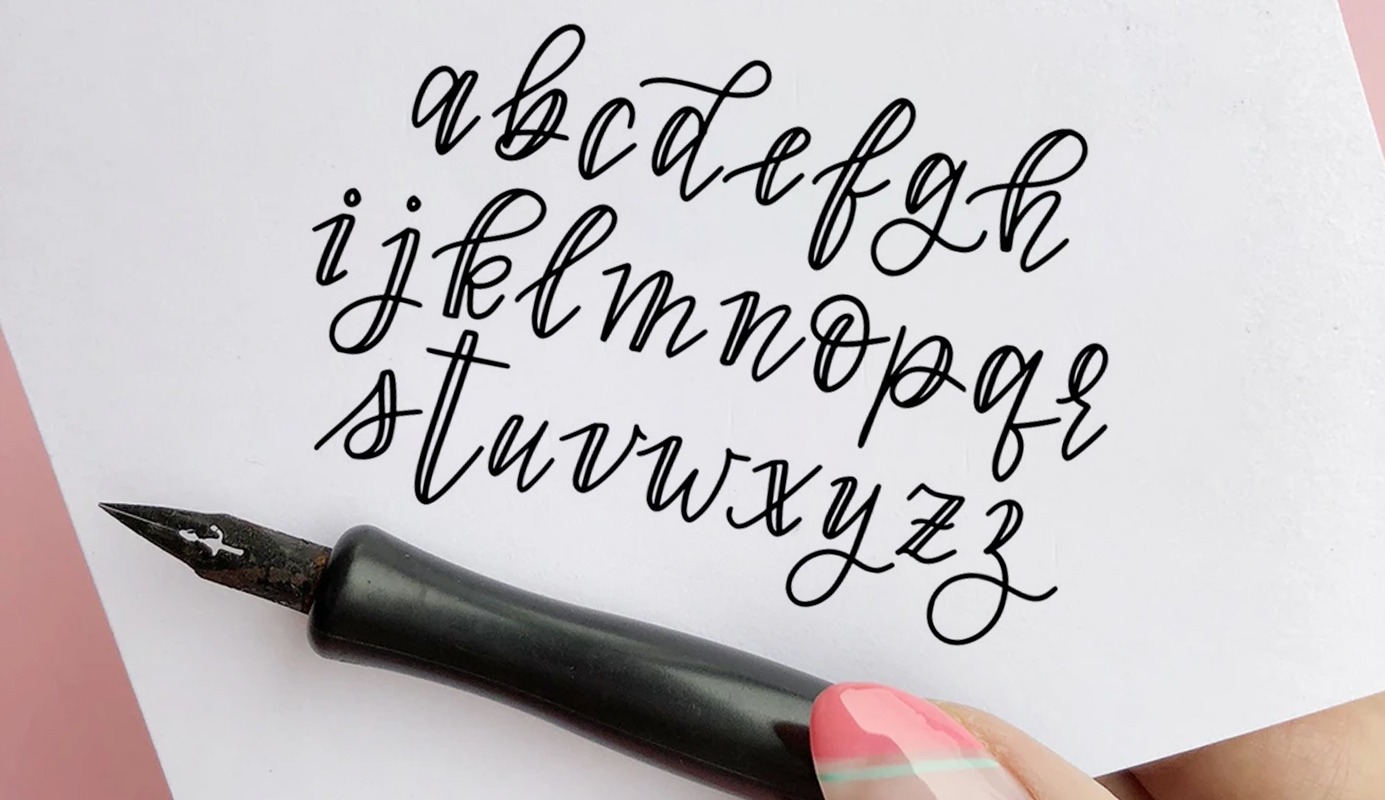 a b c d e f g h
i j k l m n o p q r
s t u v w x y z z